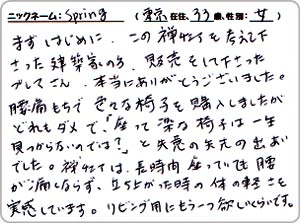 ニックネーム:Spring (東京在住、33歳、性別:女)
まずはじめに、この禅ﾁｪｱを考えて下
さった建築家の方、販売をして下さった
プレてさん、本当にありがとうございました。
腰痛もちで色々な椅子を購入しましたが
どれもダメで、「座って楽な椅子は一生
見つからないのでは?」と失意の矢先の出逢い
でした。禅ﾁｪｱは、長時間座っていても腰
が痛くならず、立ち上がった時の体の軽さを
実感しています。リビング用にもう一つ欲しいくらいです。